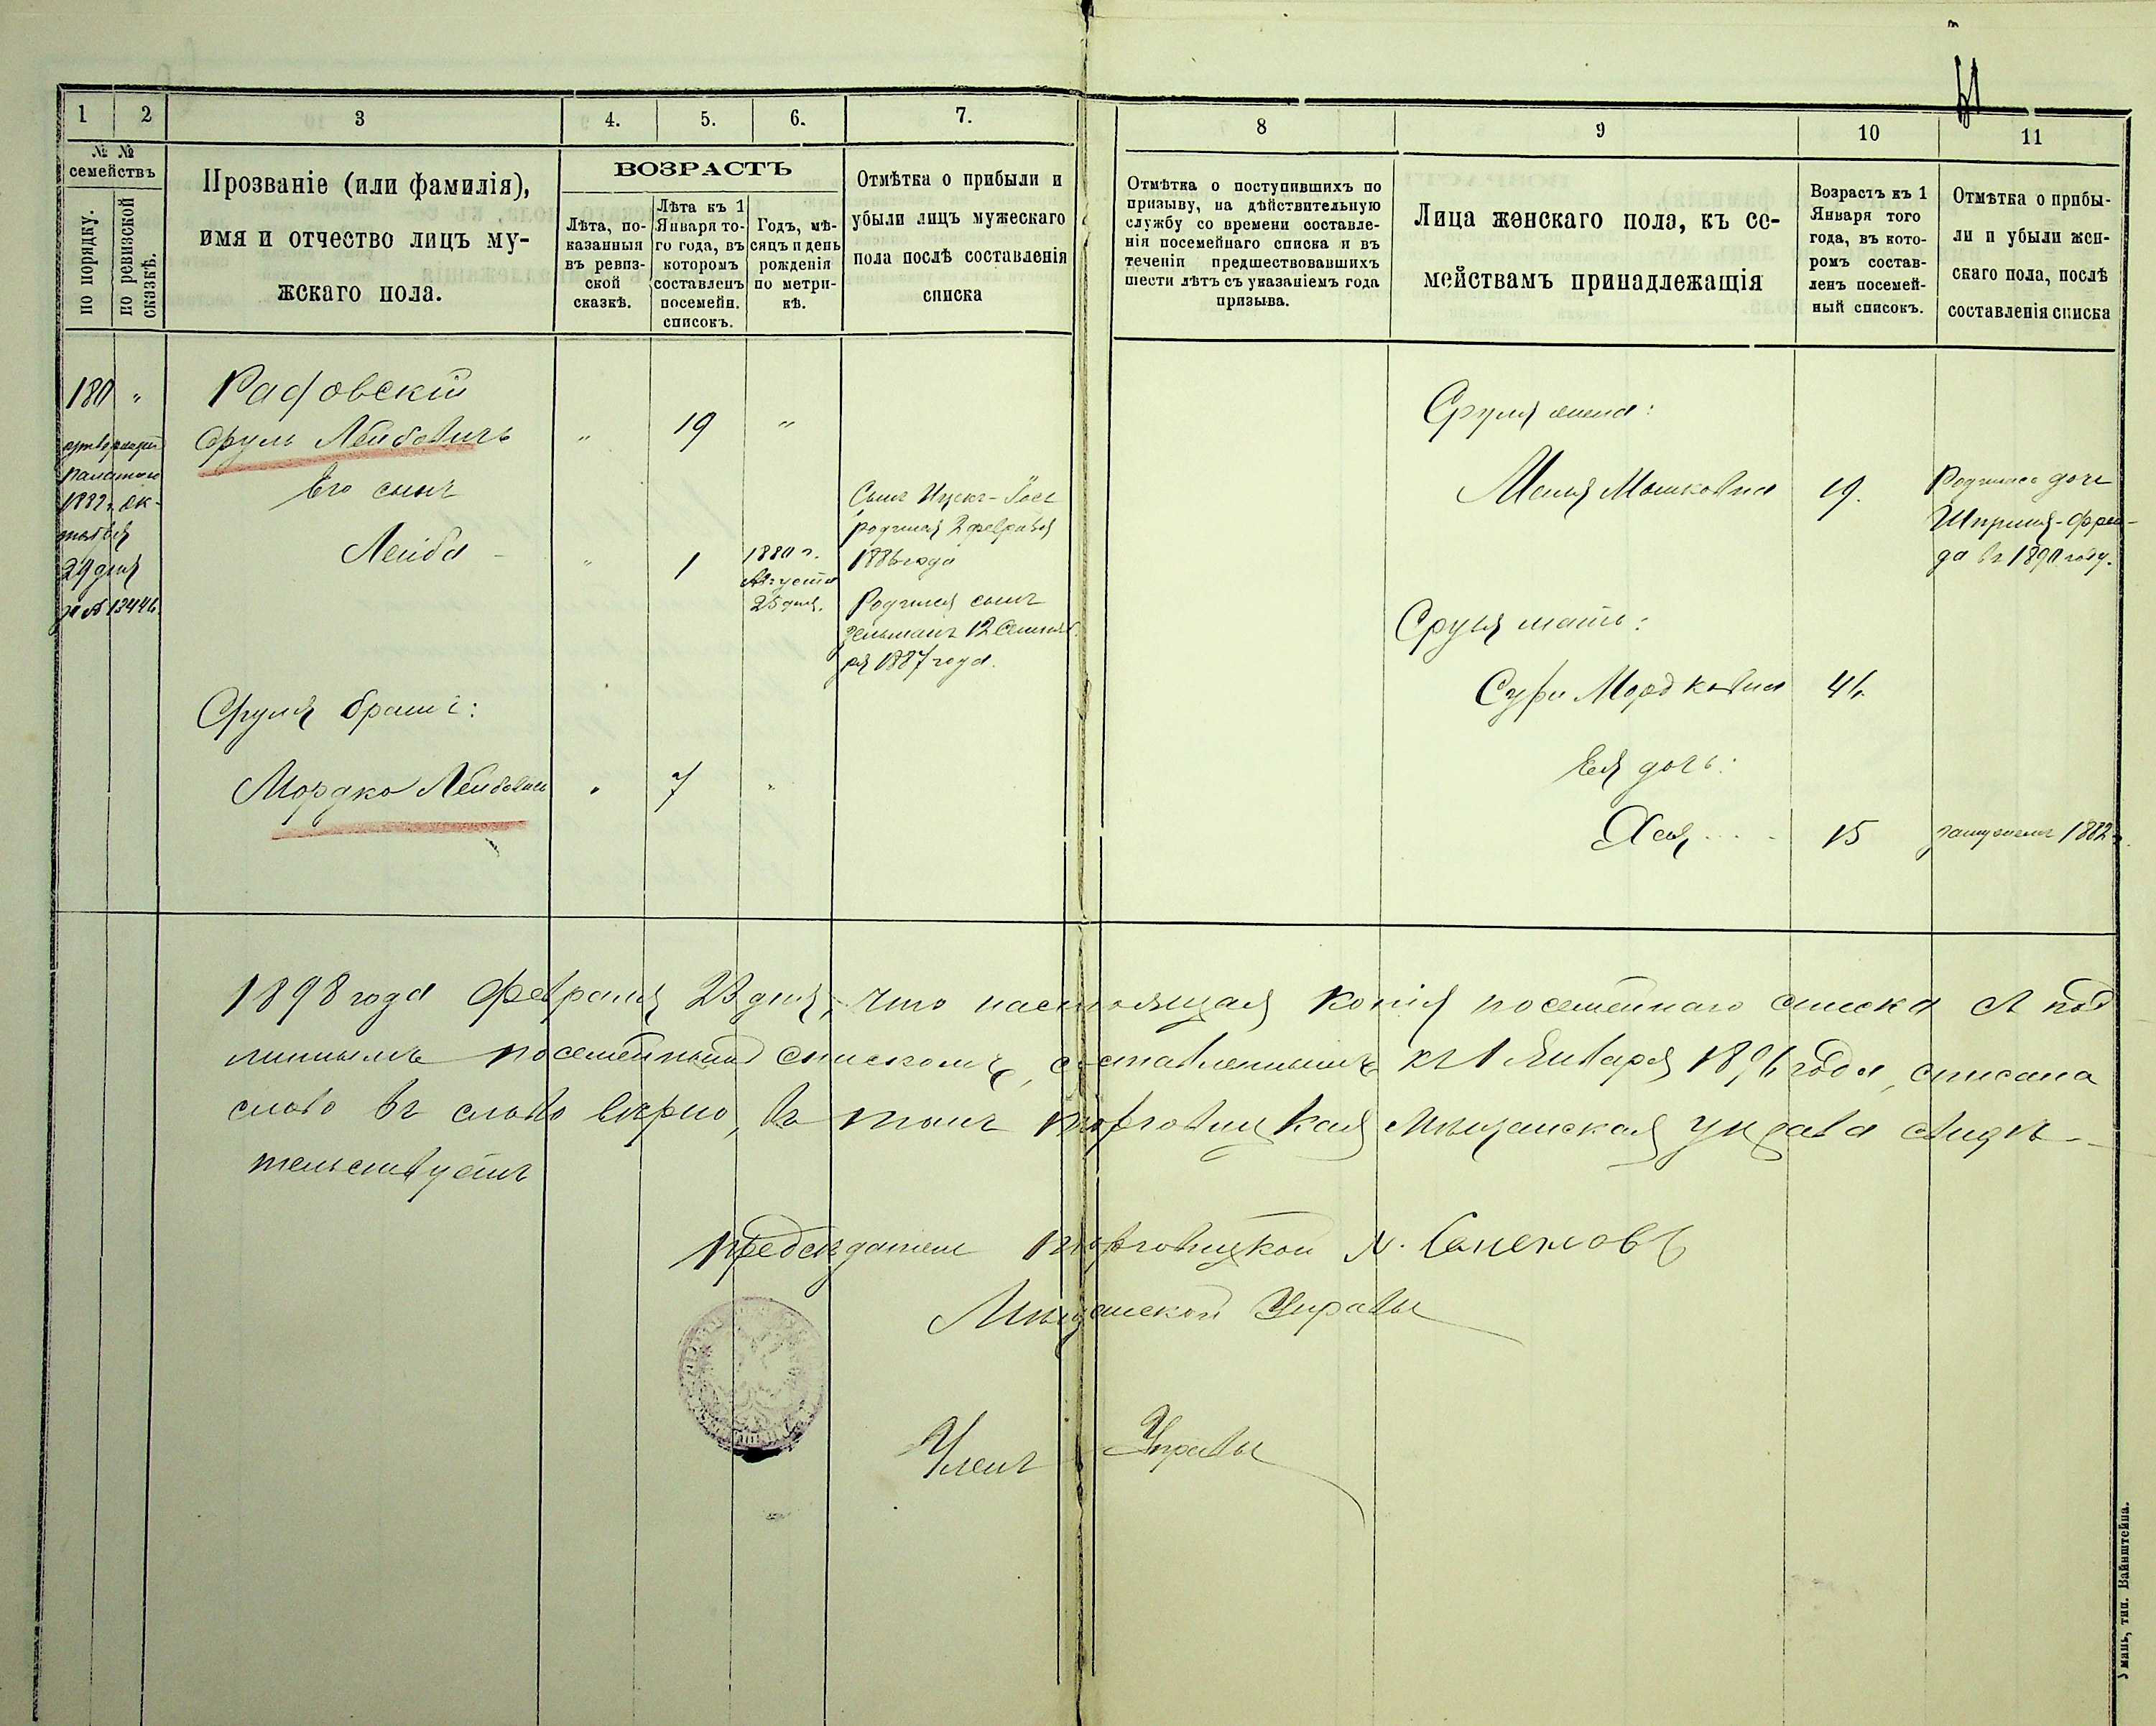 1
2
3
4.
5.
6.
7.
8
9
10
11
№ №
семействъ
по порядку.
по ревизской
сказкѣ.
Прозваніе (или фамилія),
имя и отчество лицъ му-
жскаго пола.
ВОЗРАСТЪ
Лѣта, по-
казанныя
въ ревиз-
ской
сказкѣ.
Лѣта къ 1
Января то-
го года, въ
которомъ
составленъ
посемейн.
списокъ.
Годъ, мѣ-
сяцъ и день
рожденія
по метри-
кѣ.
Отмѣтка о прибыли и
убыли лицъ мужескаго
пола послѣ составленія
списка
Отмѣтка о поступившихъ по
призыву, на дѣйствительную
службу со времени составле-
нія посемейнаго списка и въ
теченіи предшествовавшихъ
шести лѣтъ съ указаніемъ года
призыва.
Лица женскаго пола, къ се-
мействамъ принадлежащія
Возрастъ къ 1
Января того
года, въ кото-
ромъ состав-
ленъ посемей-
ный списокъ.
Отмѣтка о прибы-
ли и убыли жен-
скаго пола, послѣ
составленія списка
180 "
Палатою
1882 г. Ок-
тября
29 дня
за № 13446
Срулъ Лейбовичъ " 19 "
Его сынъ
Лейба " 1
1880 г.
Августа
25 дня.
Сынъ Ицскъ-Іосъ
родился 2 февраля
1886 года
Родился сынъ
Зельманъ 12 Сентяб-
ря 1887 года.
Сруля братъ:
Мордко Лейбовичъ " 7 "
Сруля жена:
Маня Мошковна 19.
Родилась дочь
Шпринца-Фрей-
да въ 1890 году.
Сруля мать:
Сура Мордковна
Ея дочь:
Хая 15 замужемъ 1882 г.
1898 года Февраля 23 дня, что настоящая копія посемейнаго списка съ под
линнымъ посемейнымъ спискомъ, составленнымъ къ 1 Января года, списана
слово въ слово вѣрно, въ томъ Торговицкая Мѣщанская Управа свидѣ-
тельствуетъ
Предсѣдатель Торговицкой
Мѣщанской Управы
Членъ Управы
Умань, тип. Вайнштейна.